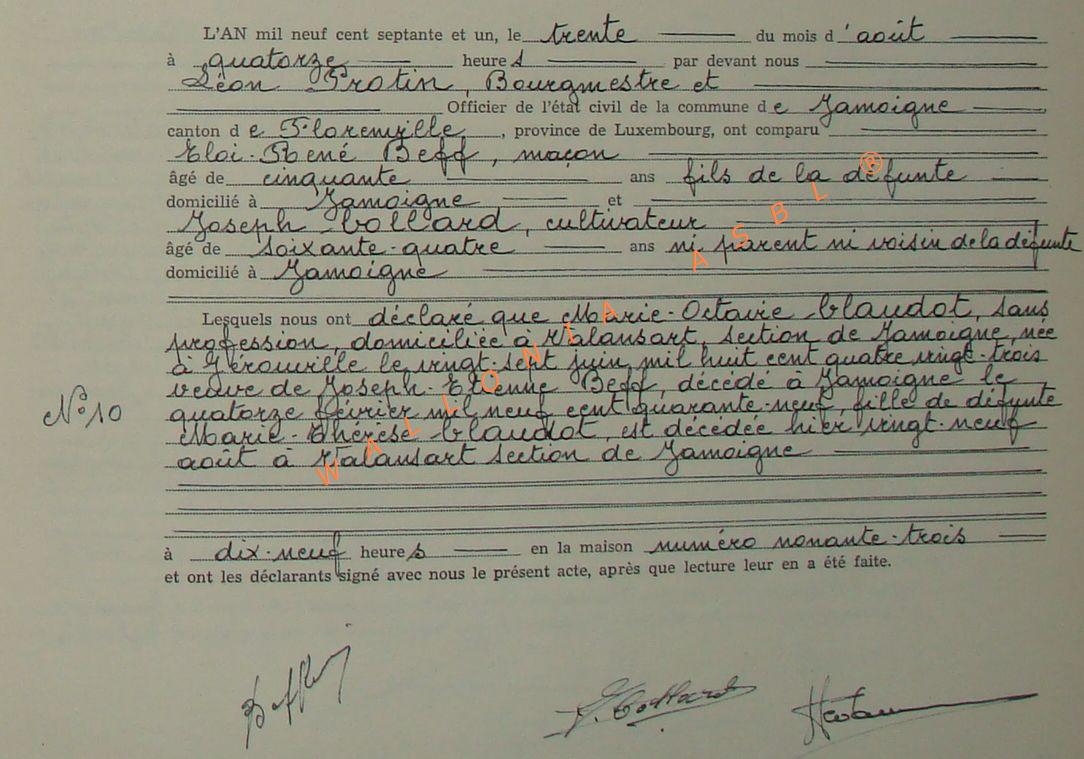 L'AN mil neuf cent septante et un, le trente du mois d'août
à quatorze heures par devant nous
Léon Protin, Bourgmestre et
Officier de l'état civil de la commune de Jamoigne
canton de Florenville, province de Luxembourg, ont comparu
Eloi-René Beff, maçon
âgé de cinquante ans fils de la défunte
domicilié à Jamoigne et
Joseph Collard, cultivateur
âgé de soixante-quatre ans ni parent ni voisin de la défunte
domicilié à Jamoigne
Lesquels nous ont déclaré que Marie-Octavie Claudot, sans
profession, domiciliée à Valansart, section de Jamoigne, née
à Gérouville le vingt-sept juin mil huit cent quatre vingt-trois
veuve de Joseph-Etienne Beff, décédé à Jamoigne le
N°10
quatorze février mil neuf cent quarante-neuf, fille de défunte
Marie-Thérèse Claudot, est décédée hier vingt-neuf
août à Valansart section de Jamoigne
à dix-neuf heures en la maison numéro nonante-trois
et ont les déclarants signé avec nous le présent acte, après que lecture leur en a été faite.
J. Collard
WALLONIA ASBL ®